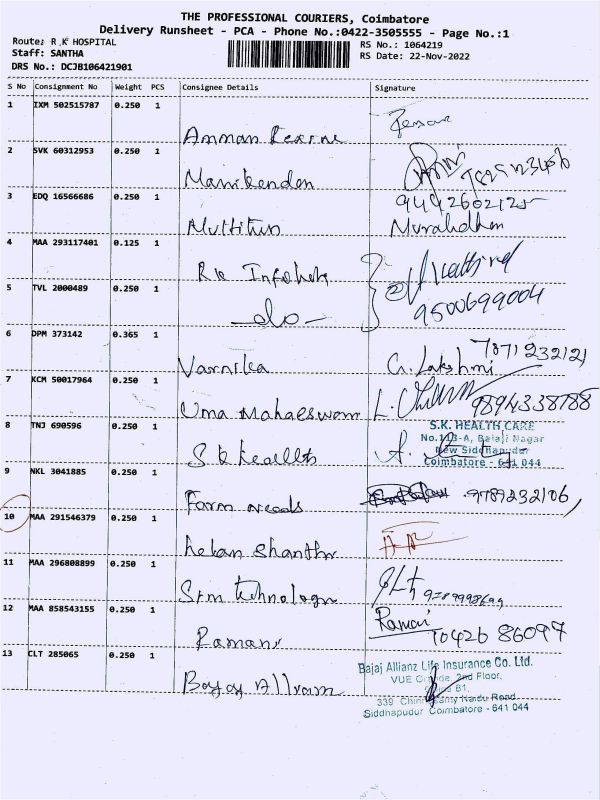 THE PROFESSIONAL COURIERS, Coimbatore
Delivery Runsheet - PCA - Phone No.:0422-3505555 - Page No.:1
Route: R K HOSPITAL
Staff: SANTHA
DRS No.: DCJB106421901
RS No.: 1064219
RS Date: 22-Nov-2022
S No Consignment No Weight PCS Consignee Details Signature
1 IXM 502515787 0.250 1
Amman
2 SVK 60312953 0.250 1
Manikenden
3 EDQ 16566686 0.250 1
9442602125
Muralidhan
4 MAA 293117401 0.125 1
RK
5 TVL 2000489 0.250 1
9500699004
-do-
6 DPM 373142 0.365 1
Varnika G. Lakshmi 7871232121
7 KCM 50017964 0.250 1
Uma Mahaeswom L. 9894338788
8 TNJ 690596 0.250 1
S.K. HEALTH CARE
No.113-A, Balaji Nagar
New Siddhapudur
Coimbatore - 641 044
S k
9 NKL 3041885 0.250 1
Farm needs 9789232106,
10 MAA 291546379 0.250 1
11 MAA 296808899 0.250 1
12 MAA 858543155 0.250 1
Ramani Ramani 10426 86097
13 CLT 285065 0.250 1
Bajaj Allianz Life Insurance Co. Ltd.
VUE 2nd Floor,
B1,
339 Naidu Road
Siddhapudur Coimbatore - 641 044